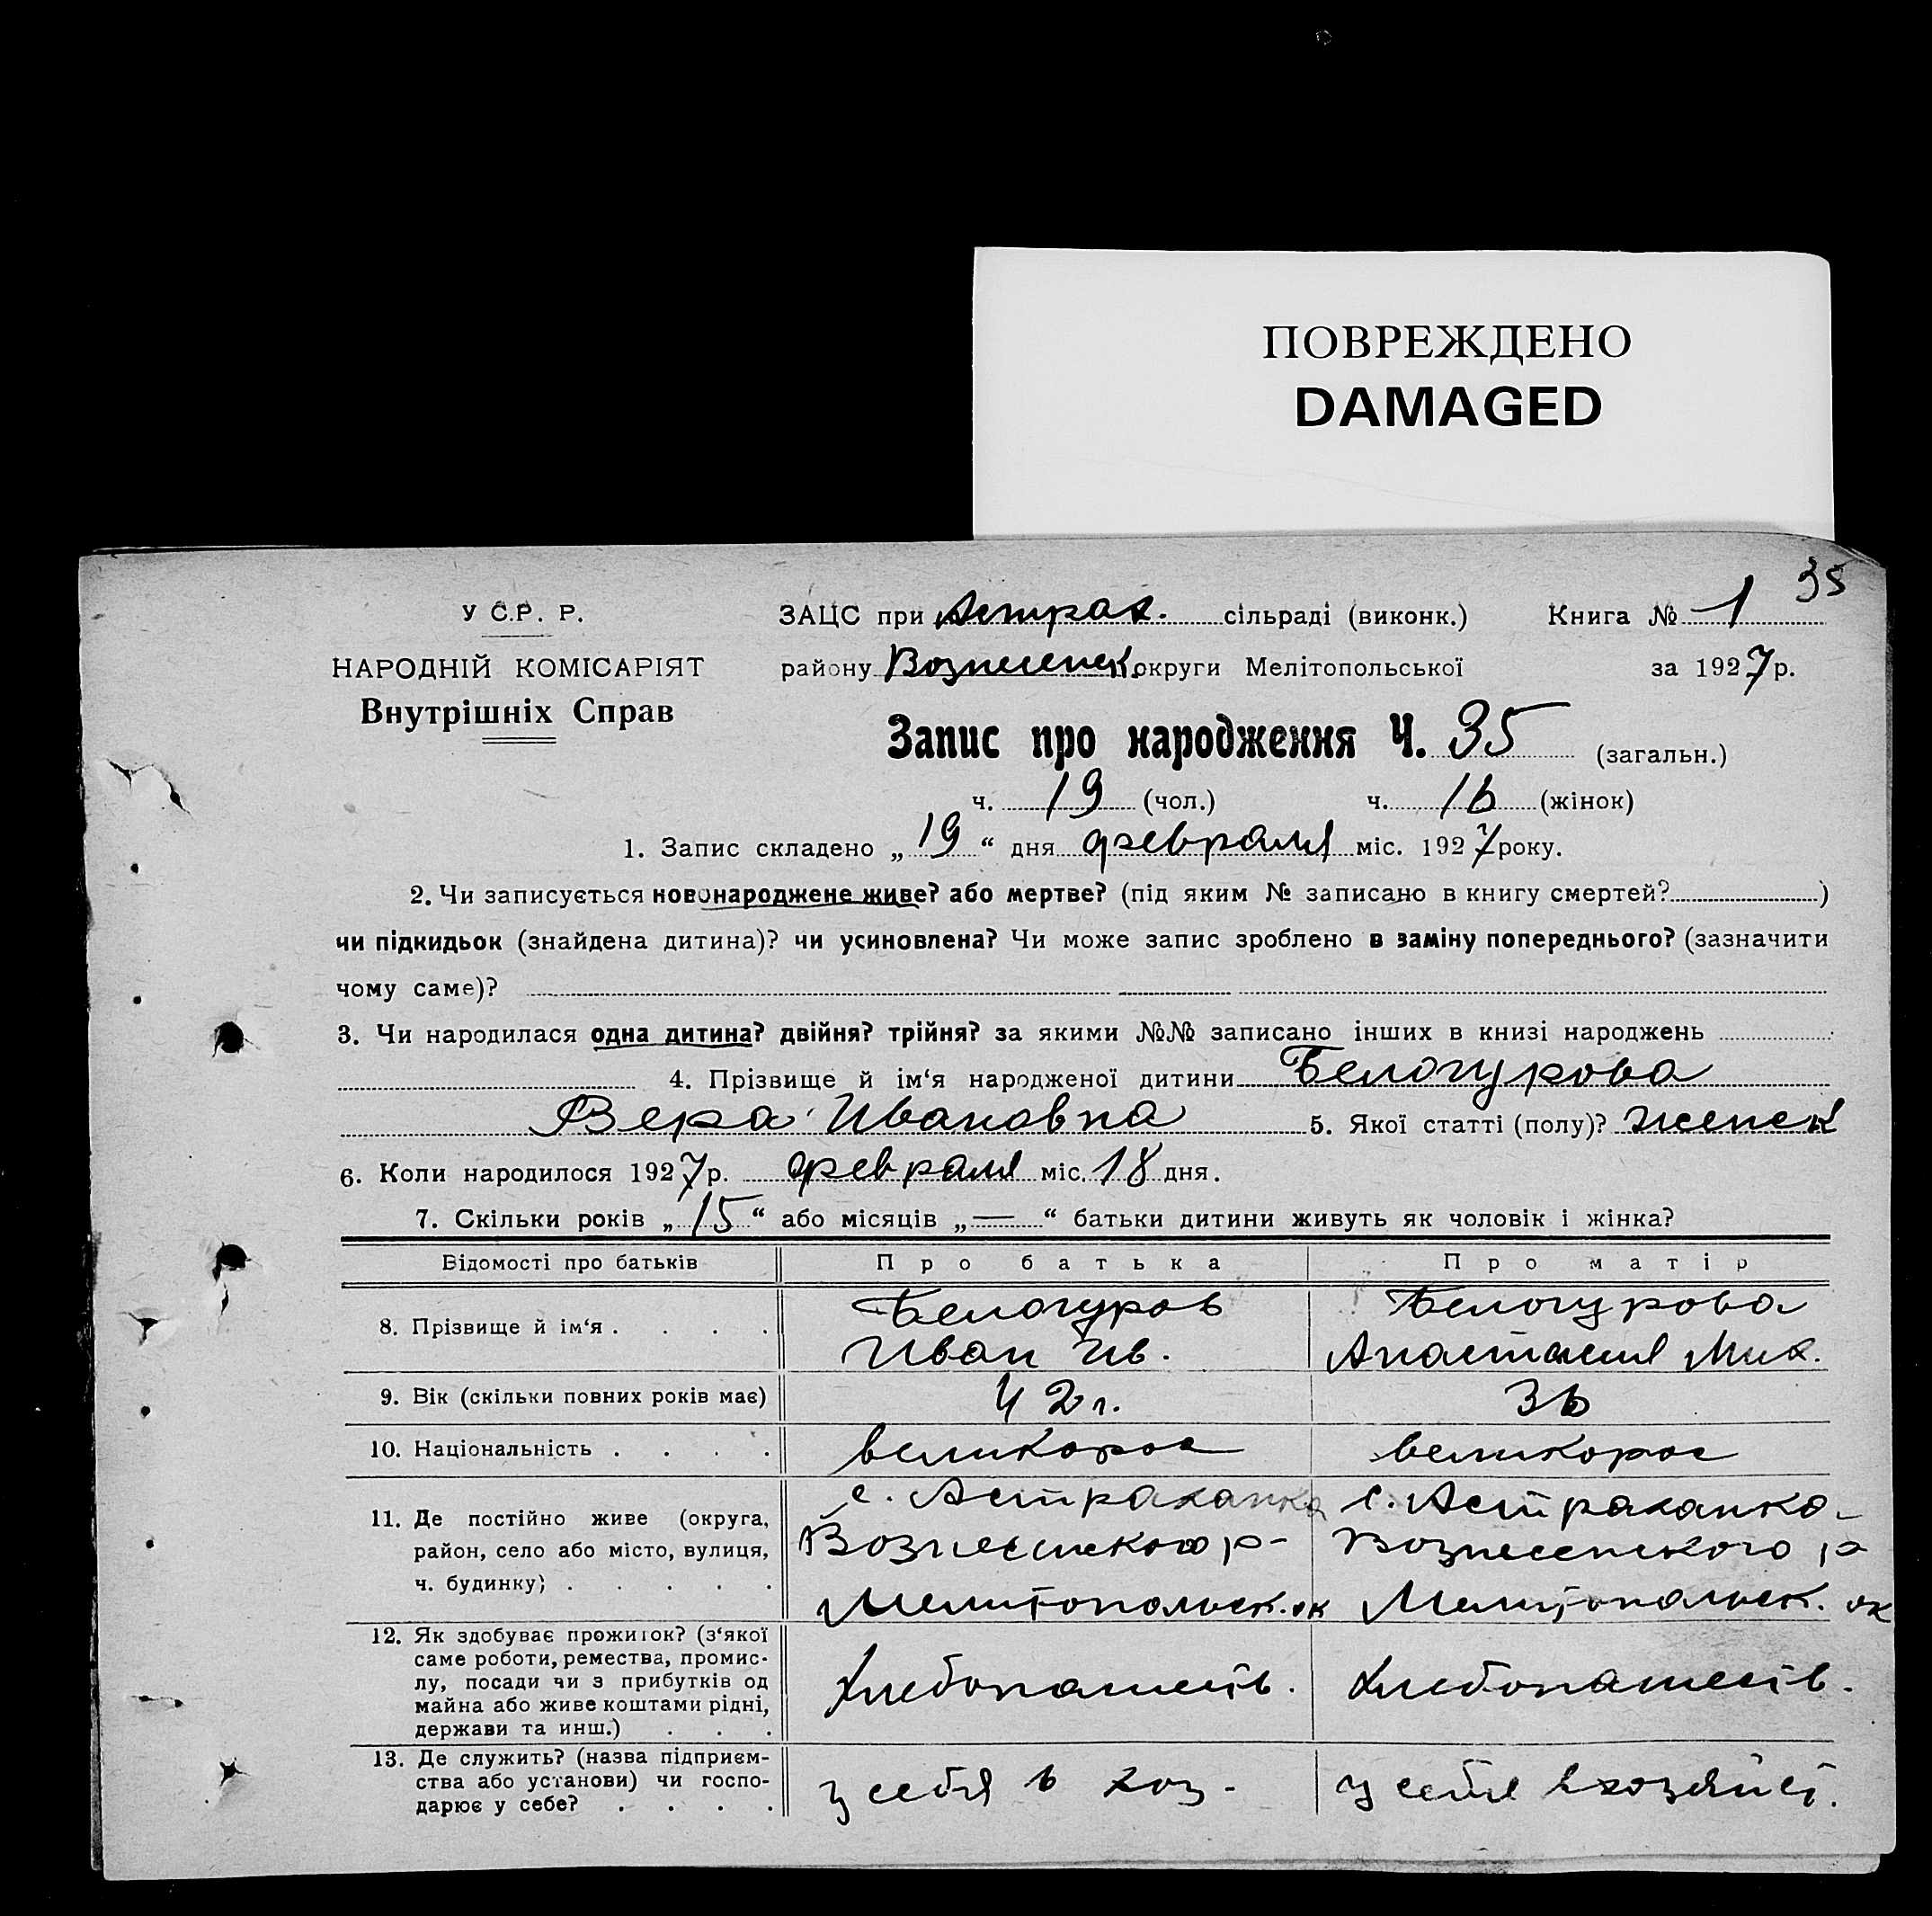 ПОВРЕЖДЕНО
DAMAGED
35
У С.Р. Р.
ЗАЦС при Астрах. сільраді (виконк.) Книга № 1
НАРОДНІЙ КОМІСАРІЯТ
району Вознесенск. округи Мелітопольської за 1927 р.
Внутрішніх Справ
Запис про народження Ч. 35 (загальн.)
ч. 19 (чол.) ч. 16 (жінок)
1. Запис складено „19“ дня февраля міс. 1927 року.
2. Чи записується новонароджене живе? або мертве? (під яким № записано в книгу смертей? )
чи підкидьок (знайдена дитина)? чи усиновлена? Чи може запис зроблено в заміну попереднього? (зазначити
чому саме)?
3. Чи народилася одна дитина? двійня? трійня? за якими №№ записано інших в книзі народжень
4. Прізвище й ім‘я народженої дитини Белогурова
Вера Ивановна 5. Якої статті (полу)? женск
6. Коли народилося 1927 р. февраля міс. 18 дня.
7. Скільки років „15“ або місяців „—“ батьки дитини живуть як чоловік і жінка?
Відомості про батьків Про батька Про матір
8. Прізвище й ім‘я . . . . Белогуров Белогурова
Иван Ив. Анастасия Мих.
9. Вік (скільки повних років має) 42 г. 36
10. Національність . . . . великорос великорос
11. Де постійно живе (округа, с. Астраханка с. Астраханка
район, село або місто, вулиця, Вознесенского р- Вознесенского р
ч. будинку) . . . . . Мелитопольск. ок Мелитопольск. ок
12. Як здобуває прожиток? (з‘якої
саме роботи, ремества, промис-
лу, посади чи з прибутків од Хлебопашеств. Хлебопашеств.
майна або живе коштами рідні,
держави та инш.) . . .
13. Де служить? (назва підприєм-
ства або установи) чи госпо- у себя в хоз- у себя в хозяйст.
дарює у себе? . . . .